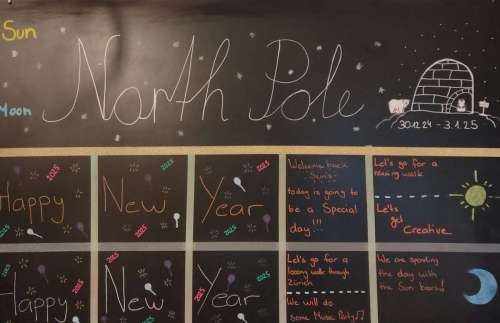 Sun
Moon
North Pole
30.12.24 - 3.1.25
Happy
2025
New
2025
2025
Year
2025
2025
Welcome back
Sun's
today is going to
be a Special
day!!!
Let's go for a
Let's
get
Creative
Happy
2025
2025
New
2025
2025
Year
2025
2025
Let's go for a
looong walk through
Zürich
We will do
some Music Party
We are spending
the day with
the Sun bears!